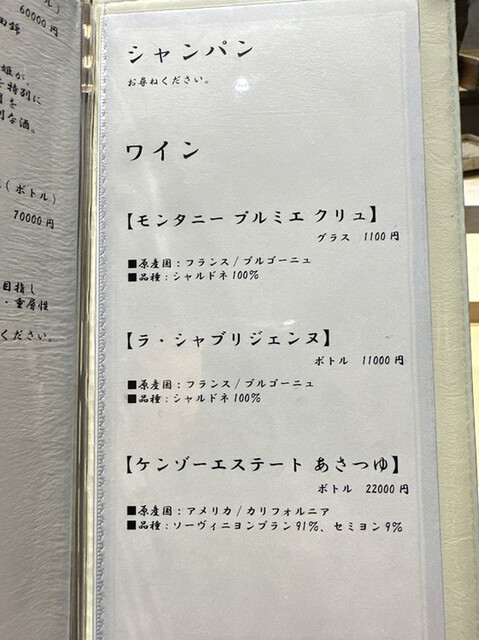 ル)
60000円
田錦
姫が、
を特別に
を
な酒。
(ボトル)
70000円
目指し
・重層性
ください。
シャンパン
お尋ねください。
ワイン
【モンタニー プルミエ クリュ】
グラス 1100円
■原産国:フランス/ブルゴーニュ
■品種:シャルドネ100%
【ラ・シャブリジェンヌ】
ボトル 11000円
■原産国:フランス/ブルゴーニュ
■品種:シャルドネ100%
【ケンゾーエステート あさつゆ】
ボトル 22000円
■原産国:アメリカ/カリフォルニア
■品種:ソーヴィニヨンブラン91%、セミヨン9%